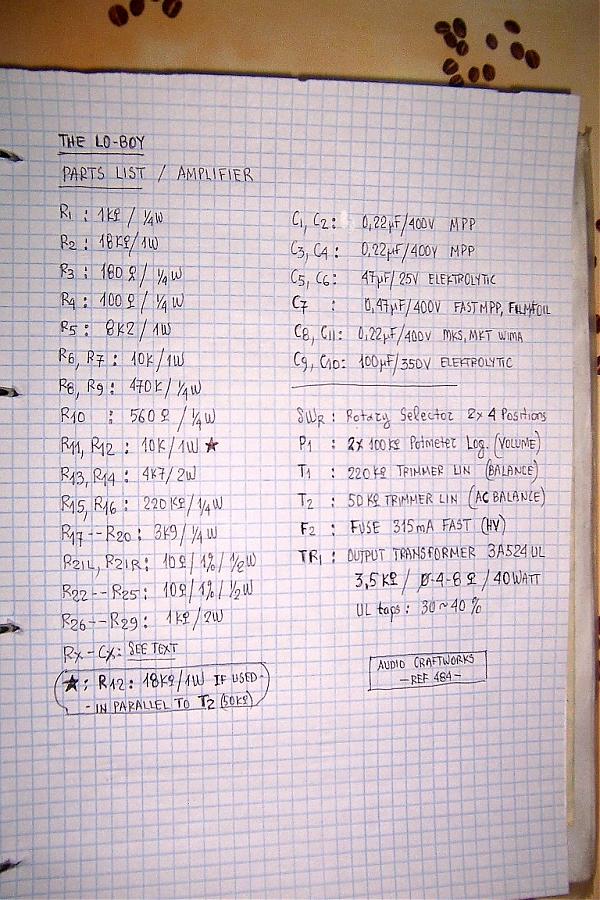 THE LO-BOY
PARTS LIST / AMPLIFIER
R1 : 1KΩ / 1/4W
R2 : 18KΩ/1W
R3 : 180 Ω / 1/4W
R4 : 100 Ω / 1/4W
R5 : 8K2 / 1W
R6, R7 : 10K/1W
R8, R9 : 470K / 1/4W
R10 : 560 Ω / 1/4W
R11, R12 : 10K/1W ★
R13, R14 : 4K7/2W
R15, R16 : 220KΩ/1/4W
R17--R20 : 3K9/1/4W
R21L, R21R : 10Ω/1%/1/2W
R22--R25 : 10Ω/1%/1/2W
R26--R29 : 1KΩ/2W
Rx-Cx : SEE TEXT
★ : R12 : 18KΩ/1W IF USED -
- IN PARALLEL TO T2 (50KΩ)
C1, C2 : 0,22µF/400V MPP
C3, C4 : 0,22µF/400V MPP
C5, C6 : 47µF/25V ELEKTROLYTIC
C7 : 0,47µF/400V FAST MPP, FILMFOIL
C8, C11 : 0,22µF/400V MKS, MKT WIMA
C9, C10 : 100µF/350V ELEKTROLYTIC
SWR : Rotary Selector 2x4 Positions
P1 : 2x100KΩ Potmeter Log. (VOLUME)
T1 : 220KΩ TRIMMER LIN (BALANCE)
T2 : 50KΩ TRIMMER LIN (AC BALANCE)
F2 : FUSE 315mA FAST (HV)
TR1 : OUTPUT TRANSFORMER 3A524UL
3,5KΩ / 0-4-8 Ω / 40WATT
UL taps : 30~40 %
AUDIO CRAFTWORKS
-REF 484-